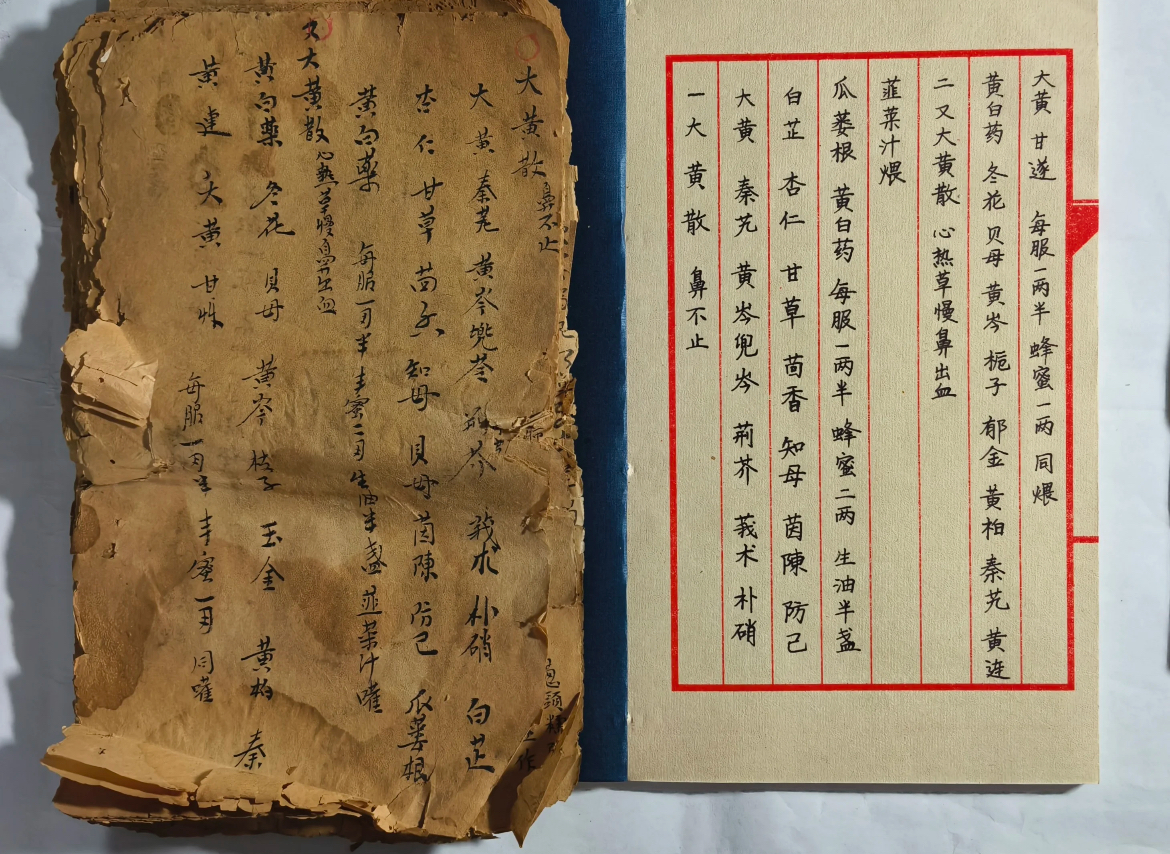 大黄散 鼻不止
大黄 秦艽 黄岑 兜苓 莪术 朴硝 白芷
杏仁 甘草 茴 知母 貝母 茵陳 防己 瓜蒌根
黄白藥 每服一刃半 丰蜜二刃 生油半盏 韮菜汁嚾
又大黄散 心熱草慢鼻出血
黄白藥 冬花 貝母 黄岑 枝子 玉金 黄柏 秦
黄連 大黄 甘 每服一刃半 丰蜜一刃 同嚾
一 大黄散 鼻不止
大黄 秦艽 黄岑 兜岑 荊芥 莪术 朴硝
白芷 杏仁 甘草 茴香 知母 茵陳 防己
瓜蒌根 黄白药 每服一两半 蜂蜜二两 生油半盏
韮菜汁煨
二 又大黄散 心热草慢鼻出血
黄白药 冬花 贝母 黄岑 栀子 郁金 黄柏 秦艽 黄连
大黄 甘遂 每服一两半 蜂蜜一两 同煨